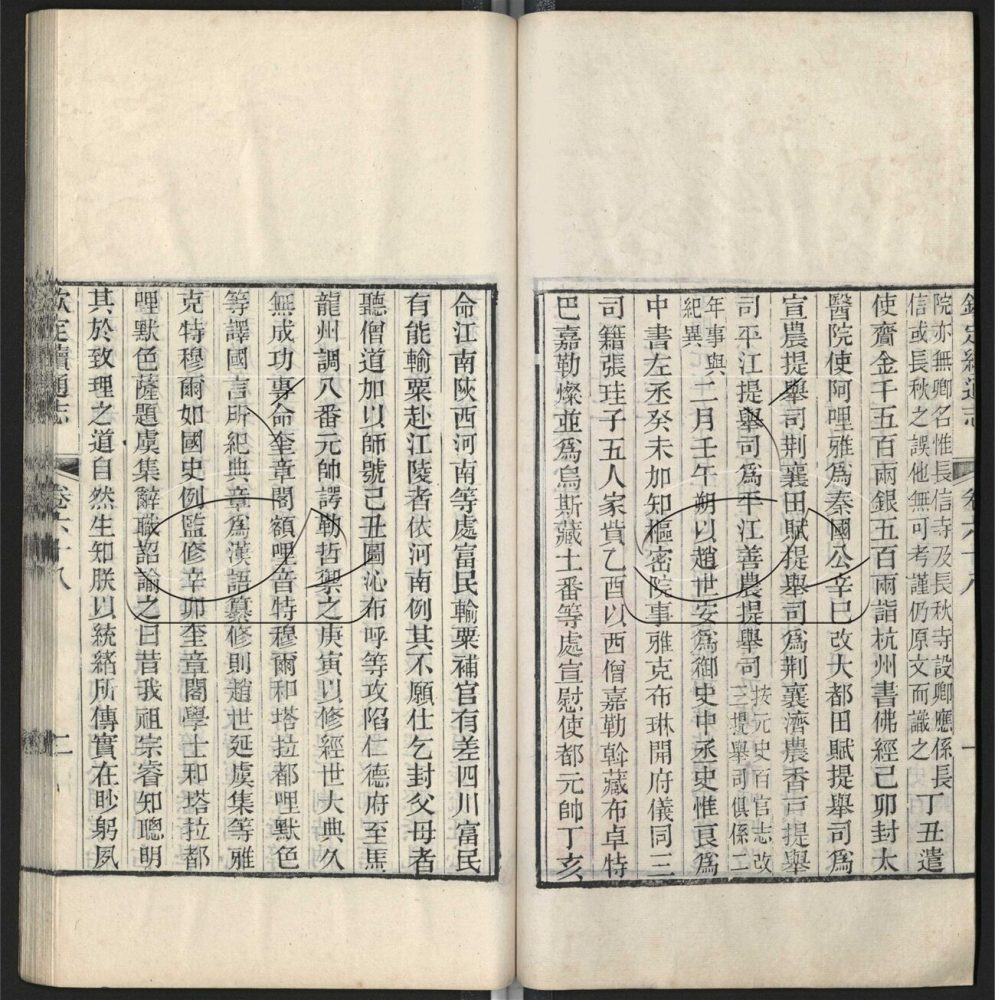 欽定續通志 卷六十八 一
院亦無卿名惟長信寺及長秋寺設卿應係長
信或長秋之誤他無可考謹仍原文而識之 丁丑遣
使齎金千五百兩銀五百兩詣杭州書佛經己卯封太
醫院使阿哩雅爲秦國公辛巳改大都田賦提舉司爲
宣農提舉司荆襄田賦提舉司爲荆襄濟農香戸提舉
司平江提舉司爲平江善農提舉司 按元史百官志改三提舉司俱係二
年事與紀異 二月壬午朔以趙世安爲御史中丞史惟良爲
中書左丞癸未加知樞密院事雅克布琳開府儀同三
司籍張珪子五人家貲乙酉以西僧嘉勒斡藏布卓特
巴嘉勒燦並爲烏斯藏土番等處宣慰使都元帥丁亥
命江南陝西河南等處富民輸粟補官有差四川富民
有能輸粟赴江陵者依河南例其不願仕乞封父母者
聽僧道加以師號己丑圖沁布呼等攻陷仁德府至馬
龍州調八番元帥諤勒哲禦之庚寅以修經世大典久
無成功專命奎章閣額哩音特穆爾和塔拉都哩默色
等譯國言所紀典章爲漢語纂修則趙世延虞集等雅
克特穆爾如國史例監修辛卯奎章閣學士和塔拉都
哩默色薩題虞集辭職詔諭之曰昔我祖宗睿知聰明
其於致理之道自然生知朕以統緒所傳實在眇躬夙
欽定續通志 卷六十八 二